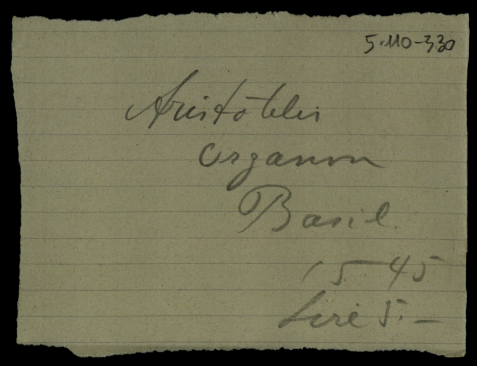 5·110-330
Aristotelis
Organon
Basil.
1545
Lire 5.—